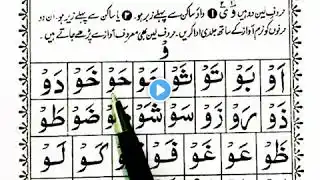 حروفِ لین دو ہیں وْ یْ ① واؤ ساکن سے پہلے زبر ہو۔ ② یا ساکن سے پہلے زبر ہو۔ ان دو
حرفوں کو نرم آواز کے ساتھ جلدی ادا کریں۔ حروف لین بھی معروف آواز سے پڑھے جاتے ہیں۔
وْ
اَوْ بَوْ تَوْ ثَوْ جَوْ حَوْ خَوْ دَوْ
ذَوْ رَوْ زَوْ سَوْ شَوْ صَوْ ضَوْ طَوْ
ظَوْ عَوْ غَوْ فَوْ قَوْ كَوْ لَوْ